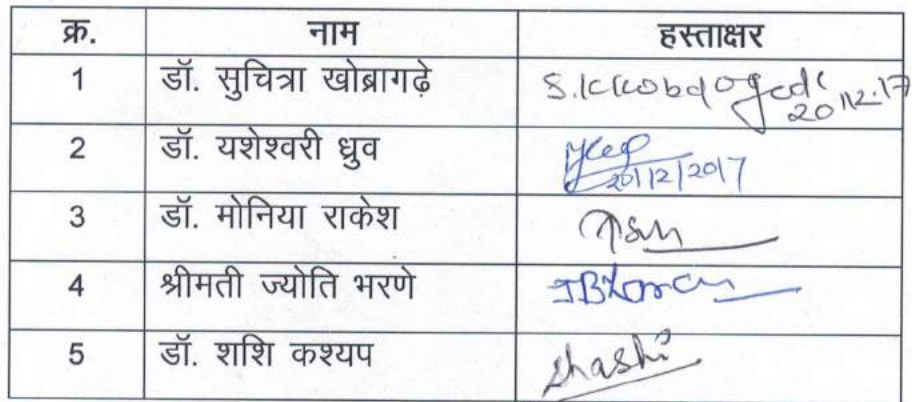 क्र. नाम हस्ताक्षर
1 डॉ. सुचित्रा खोब्रागढ़े S.K 20.12.17
2 डॉ. यशेश्वरी ध्रुव 20/12/2017
3 डॉ. मोनिया राकेश
4 श्रीमती ज्योति भरणे
5 डॉ. शशि कश्यप Shashi